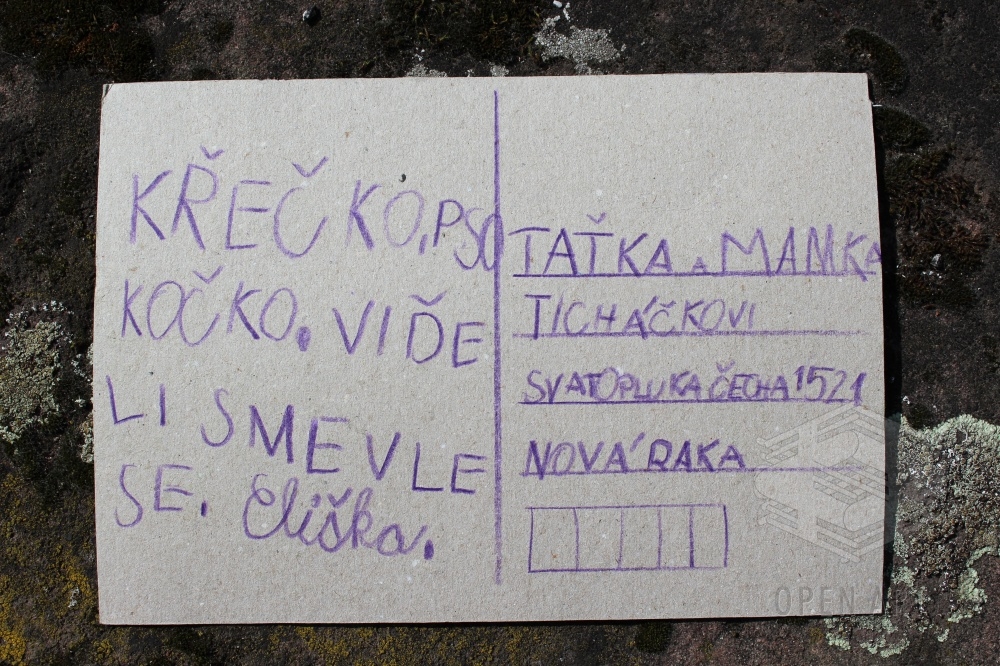 KŘEČKO,PSO
KOČKO. VIĎE
LI SMEVLE
SE. Eliška.
TAŤKA A MAMKA
TICHÁČKOVI
SVATOPLUKA ČECHA 1521
NOVÁ RAKA
OPEN A